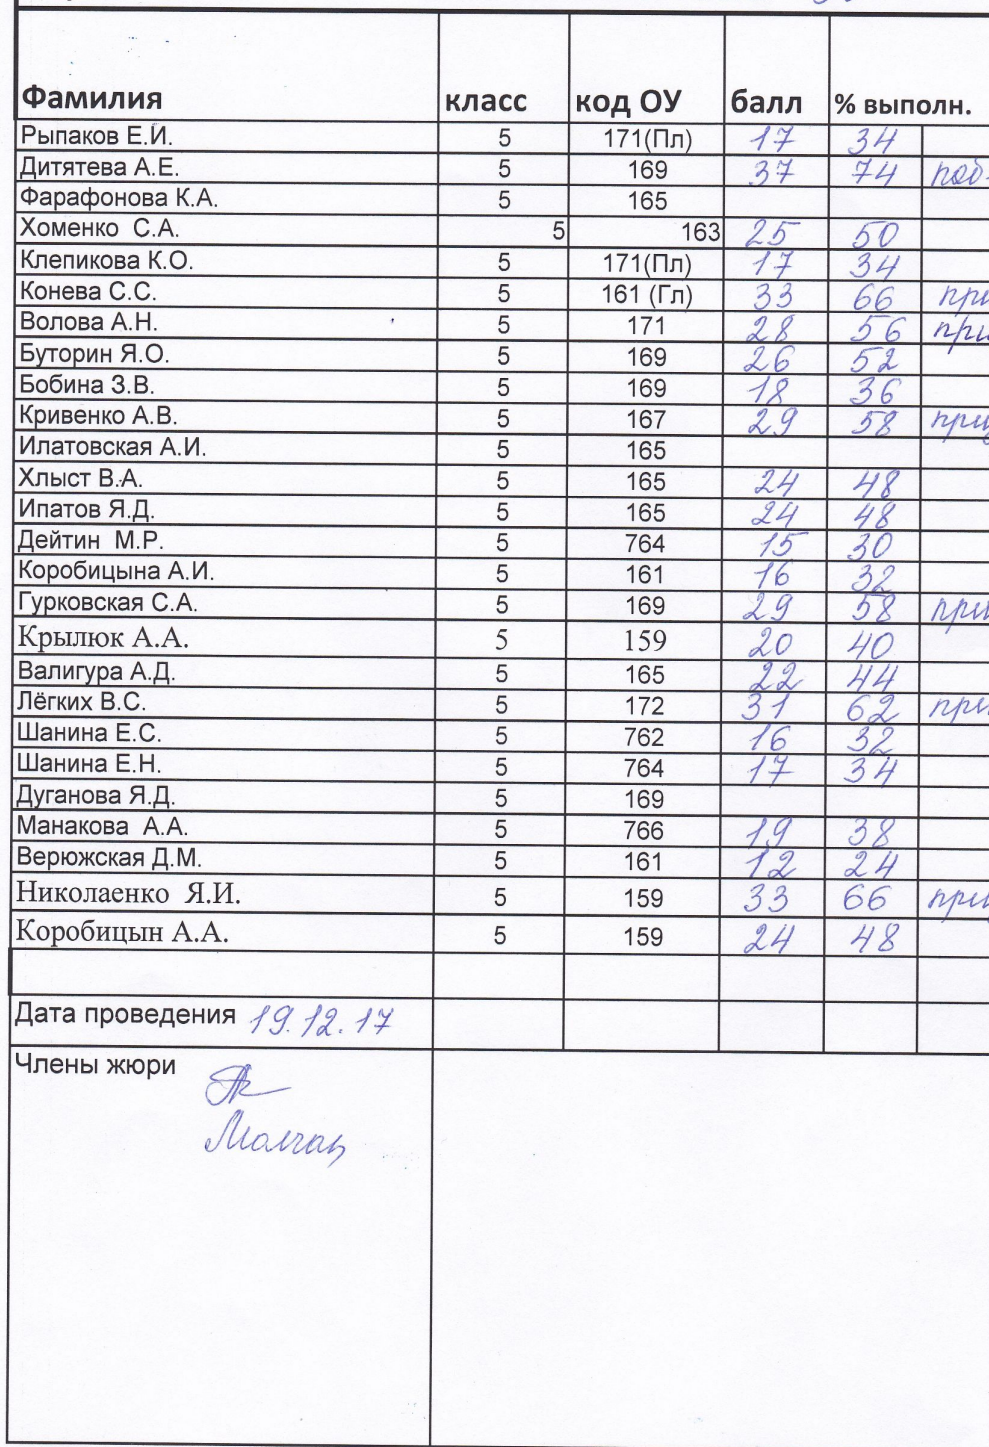 Фамилия класс код ОУ балл % выполн.
Рыпаков Е.И. 5 171(Пл) 17 34
Дитятева А.Е. 5 169 37 74 поб-
Фарафонова К.А. 5 165
Хоменко С.А. 5 163 25 50
Клепикова К.О. 5 171(Пл) 17 34
Конева С.С. 5 161 (Гл) 33 66 при
Волова А.Н. 5 171 28 56 при
Буторин Я.О. 5 169 26 52
Бобина З.В. 5 169 18 36
Кривенко А.В. 5 167 29 58 приз
Илатовская А.И. 5 165
Хлыст В.А. 5 165 24 48
Ипатов Я.Д. 5 165 24 48
Дейтин М.Р. 5 764 15 30
Коробицына А.И. 5 161 16 32
Гурковская С.А. 5 169 29 58 при
Крылюк А.А. 5 159 20 40
Валигура А.Д. 5 165 22 44
Лёгких В.С. 5 172 31 62 при
Шанина Е.С. 5 762 16 32
Шанина Е.Н. 5 764 17 34
Дуганова Я.Д. 5 169
Манакова А.А. 5 766 19 38
Верюжская Д.М. 5 161 12 24
Николаенко Я.И. 5 159 33 66 приз
Коробицын А.А. 5 159 24 48
Дата проведения 19.12.17
Члены жюри